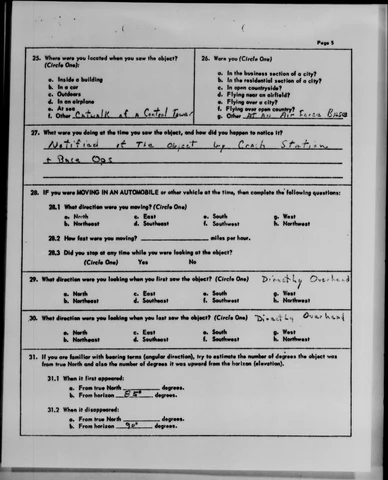 Page 5
25. Where were you located when you saw the object?
(Circle One):
a. Inside a building
b. In a car
c. Outdoors
d. In an airplane
e. At sea
f. Other Catwalk of a Control Tower
26. Were you (Circle One)
a. In the business section of a city?
b. In the residential section of a city?
c. In open countryside?
d. Flying near an airfield?
e. Flying over a city?
f. Flying over open country?
g. Other At An Air Force Base
27. What were you doing at the time you saw the object, and how did you happen to notice it?
Notified of The Object by Crash Station
+ Base Ops
28. IF you were MOVING IN AN AUTOMOBILE or other vehicle at the time, then complete the following questions:
28.1 What direction were you moving? (Circle One)
a. North c. East e. South g. West
b. Northeast d. Southeast f. Southwest h. Northwest
28.2 How fast were you moving? miles per hour.
28.3 Did you stop at any time while you were looking at the object?
(Circle One) Yes No
29. What direction were you looking when you first saw the object? (Circle One) Directly Overhead
a. North c. East e. South g. West
b. Northeast d. Southeast f. Southwest h. Northwest
30. What direction were you looking when you last saw the object? (Circle One) Directly Overhead
a. North c. East e. South g. West
b. Northeast d. Southeast f. Southwest h. Northwest
31. If you are familiar with bearing terms (angular direction), try to estimate the number of degrees the object was
from true North and also the number of degrees it was upward from the horizon (elevation).
31.1 When it first appeared:
a. From true North degrees.
b. From horizon 85° degrees.
31.2 When it disappeared:
a. From true North degrees.
b. From horizon 90° degrees.